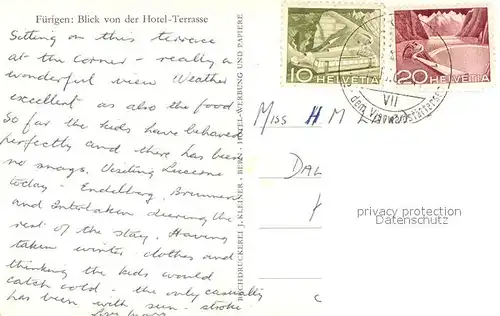 Fürigen: Blick von der Hotel-Terrasse
Setting on this terrace
at the corner - really a
wonderful view Weather
excellent as also the food
So far the kids have behaved
perfectly and there has been
no snags. Visiting Lucerne
today - Endelberg, Brunnen
and Interlaken during the
rest of the stay. Having
taken winter clothes and
thinking the kids would
catch cold - the only casualty
has been with sun-stroke.
Love
BUCHDRUCKEREI J. KLEINER - BERN - HOTEL-WERBUNG UND PAPIERE
10 HELVETIA
20 HELVETIA
VII
dem Vierwaldstättersee
Miss H M
DAL
privacy protection
Datenschutz